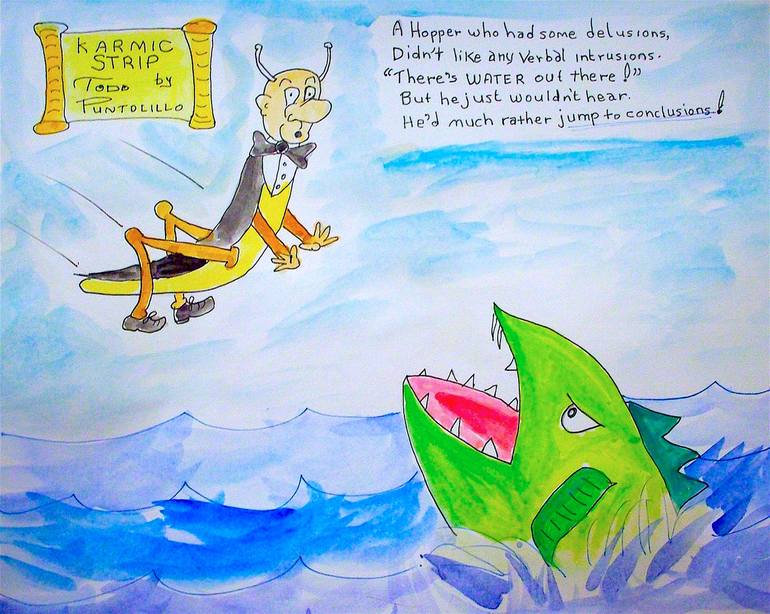 KARMIC
STRIP
by
TODD
PUNTOLILLO
A Hopper who had some delusions,
Didn't like any Verbal intrusions.
"There's WATER out there!"
But he just wouldn't hear.
He'd much rather jump to conclusions!